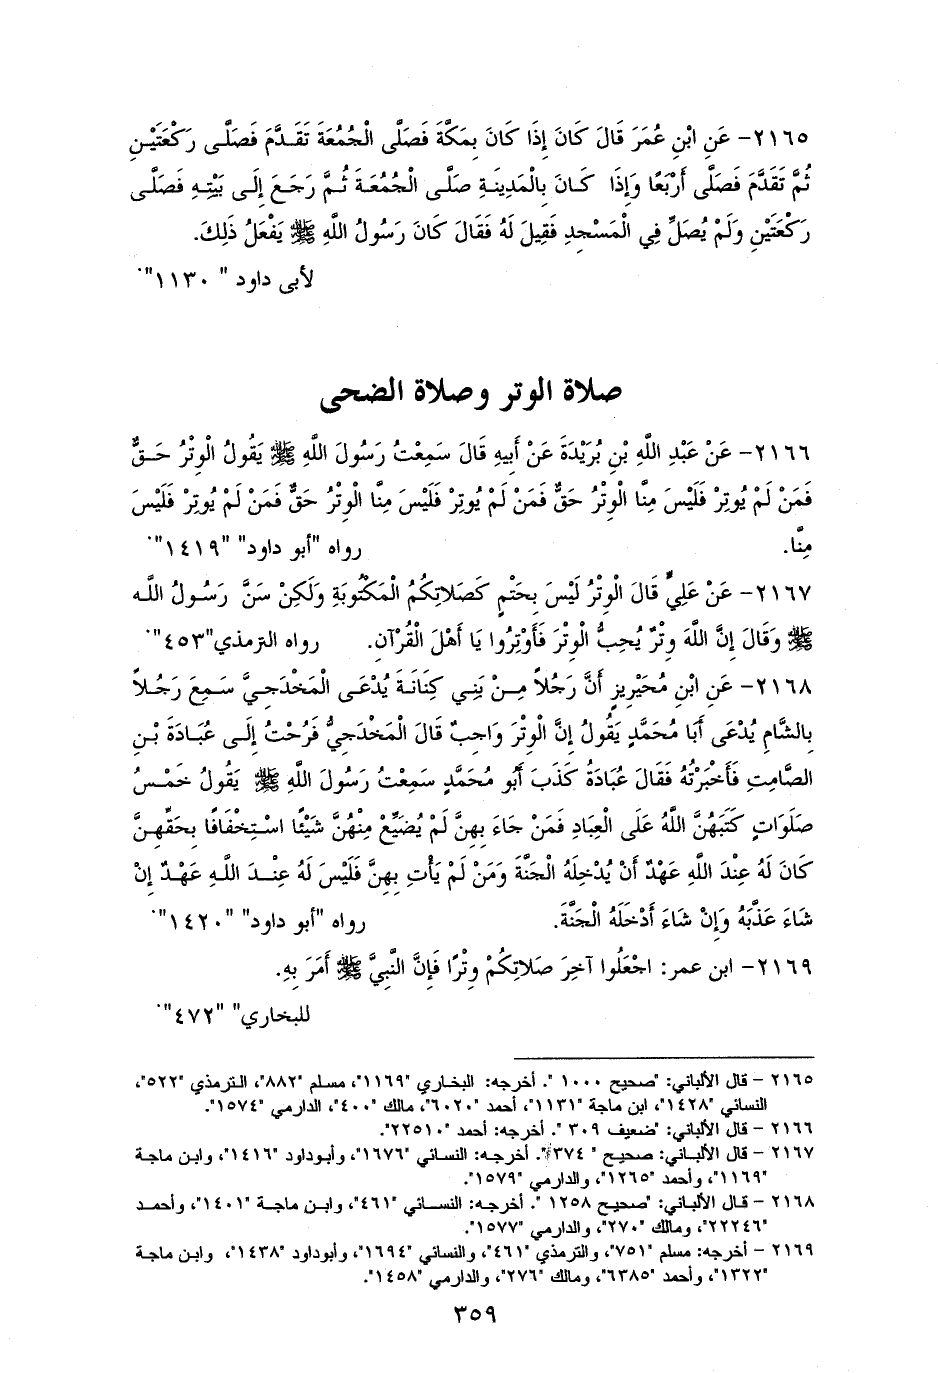 ٢١٦٥- عَنِ ابْنِ عُمَرَ قَالَ كَانَ إِذَا كَانَ بِمَكَّةَ فَصَلَّى الْجُمُعَةَ تَقَدَّمَ فَصَلَّى رَكْعَتَيْنِ
ثُمَّ تَقَدَّمَ فَصَلَّى أَرْبَعًا وَإِذَا كَانَ بِالْمَدِينَةِ صَلَّى الْجُمُعَةَ ثُمَّ رَجَعَ إِلَى بَيْتِهِ فَصَلَّى
رَكْعَتَيْنِ وَلَمْ يُصَلِّ فِي الْمَسْجِدِ فَقِيلَ لَهُ فَقَالَ كَانَ رَسُولُ اللَّهِ ﷺ يَفْعَلُ ذَلِكَ.
لأبى داود " ١١٣٠".
صلاة الوتر وصلاة الضحى
٢١٦٦- عَنْ عَبْدِ اللَّهِ بْنِ بُرَيْدَةَ عَنْ أَبِيهِ قَالَ سَمِعْتُ رَسُولَ اللَّهِ ﷺ يَقُولُ الْوِتْرُ حَقٌّ
فَمَنْ لَمْ يُوتِرْ فَلَيْسَ مِنَّا الْوِتْرُ حَقٌّ فَمَنْ لَمْ يُوتِرْ فَلَيْسَ مِنَّا الْوِتْرُ حَقٌّ فَمَنْ لَمْ يُوتِرْ فَلَيْسَ
مِنَّا. رواه "أبو داود" "١٤١٩".
٢١٦٧- عَنْ عَلِيٍّ قَالَ الْوِتْرُ لَيْسَ بِحَتْمٍ كَصَلَاتِكُمُ الْمَكْتُوبَةِ وَلَكِنْ سَنَّ رَسُولُ اللَّه
ﷺ وَقَالَ إِنَّ اللَّهَ وِتْرٌ يُحِبُّ الْوِتْرَ فَأَوْتِرُوا يَا أَهْلَ الْقُرْآنِ. رواه الترمذي"٤٥٣".
٢١٦٨- عَنِ ابْنِ مُحَيْرِيزٍ أَنَّ رَجُلاً مِنْ بَنِي كِنَانَةَ يُدْعَى الْمَخْدَجِيَّ سَمِعَ رَجُلاً
بِالشَّامِ يُدْعَى أَبَا مُحَمَّدٍ يَقُولُ إِنَّ الْوِتْرَ وَاجِبٌ قَالَ الْمَخْدَجِيُّ فَرُحْتُ إِلَى عُبَادَةَ بْنِ
الصَّامِتِ فَأَخْبَرْتُهُ فَقَالَ عُبَادَةُ كَذَبَ أَبُو مُحَمَّدٍ سَمِعْتُ رَسُولَ اللَّهِ ﷺ يَقُولُ خَمْسُ
صَلَوَاتٍ كَتَبَهُنَّ اللَّهُ عَلَى الْعِبَادِ فَمَنْ جَاءَ بِهِنَّ لَمْ يُضَيِّعْ مِنْهُنَّ شَيْئًا اسْتِخْفَافًا بِحَقِّهِنَّ
كَانَ لَهُ عِنْدَ اللَّهِ عَهْدٌ أَنْ يُدْخِلَهُ الْجَنَّةَ وَمَنْ لَمْ يَأْتِ بِهِنَّ فَلَيْسَ لَهُ عِنْدَ اللَّهِ عَهْدٌ إِنْ
شَاءَ عَذَّبَهُ وَإِنْ شَاءَ أَدْخَلَهُ الْجَنَّةَ. رواه "أبو داود" "١٤٢٠".
٢١٦٩- ابن عمر: اجْعَلُوا آخِرَ صَلَاتِكُمْ وِتْرًا فَإِنَّ النَّبِيَّ ﷺ أَمَرَ بِهِ.
للبخاري" "٤٧٢".
٢١٦٥ - قال الألباني: "صحيح ١٠٠٠ ". أخرجه: البخاري "١١٦٩"، مسلم "٨٨٢"، الترمذي "٥٢٢"،
النسائي "١٤٢٨"، ابن ماجة "١١٣١"، أحمد "٦٠٢٠"، مالك "٤٠٠"، الدارمي "١٥٧٤".
٢١٦٦ - قال الألباني: "ضعيف ٣٠٩ ". أخرجه: أحمد "٢٢٥١٠".
٢١٦٧ - قال الألباني: صحيح " ٣٧٤". أخرجه: النسائي "١٦٧٦"، وأبوداود "١٤١٦"، وابن ماجة
"١١٦٩"، وأحمد "١٢٦٥"، والدارمي "١٥٧٩".
٢١٦٨ - قال الألباني: "صحيح ١٢٥٨ ". أخرجه: النسائي "٤٦١"، وابن ماجة "١٤٠١"، وأحمد
"٢٢٢٤٦"، ومالك "٢٧٠"، والدارمي "١٥٧٧".
٢١٦٩ - أخرجه: مسلم "٧٥١"، والترمذي "٤٦١"، والنسائي "١٦٩٤"، وأبوداود "١٤٣٨"، وابن ماجة
"١٣٢٢"، وأحمد "٦٣٨٥"، ومالك "٢٧٦"، والدارمي "١٤٥٨".
٣٥٩